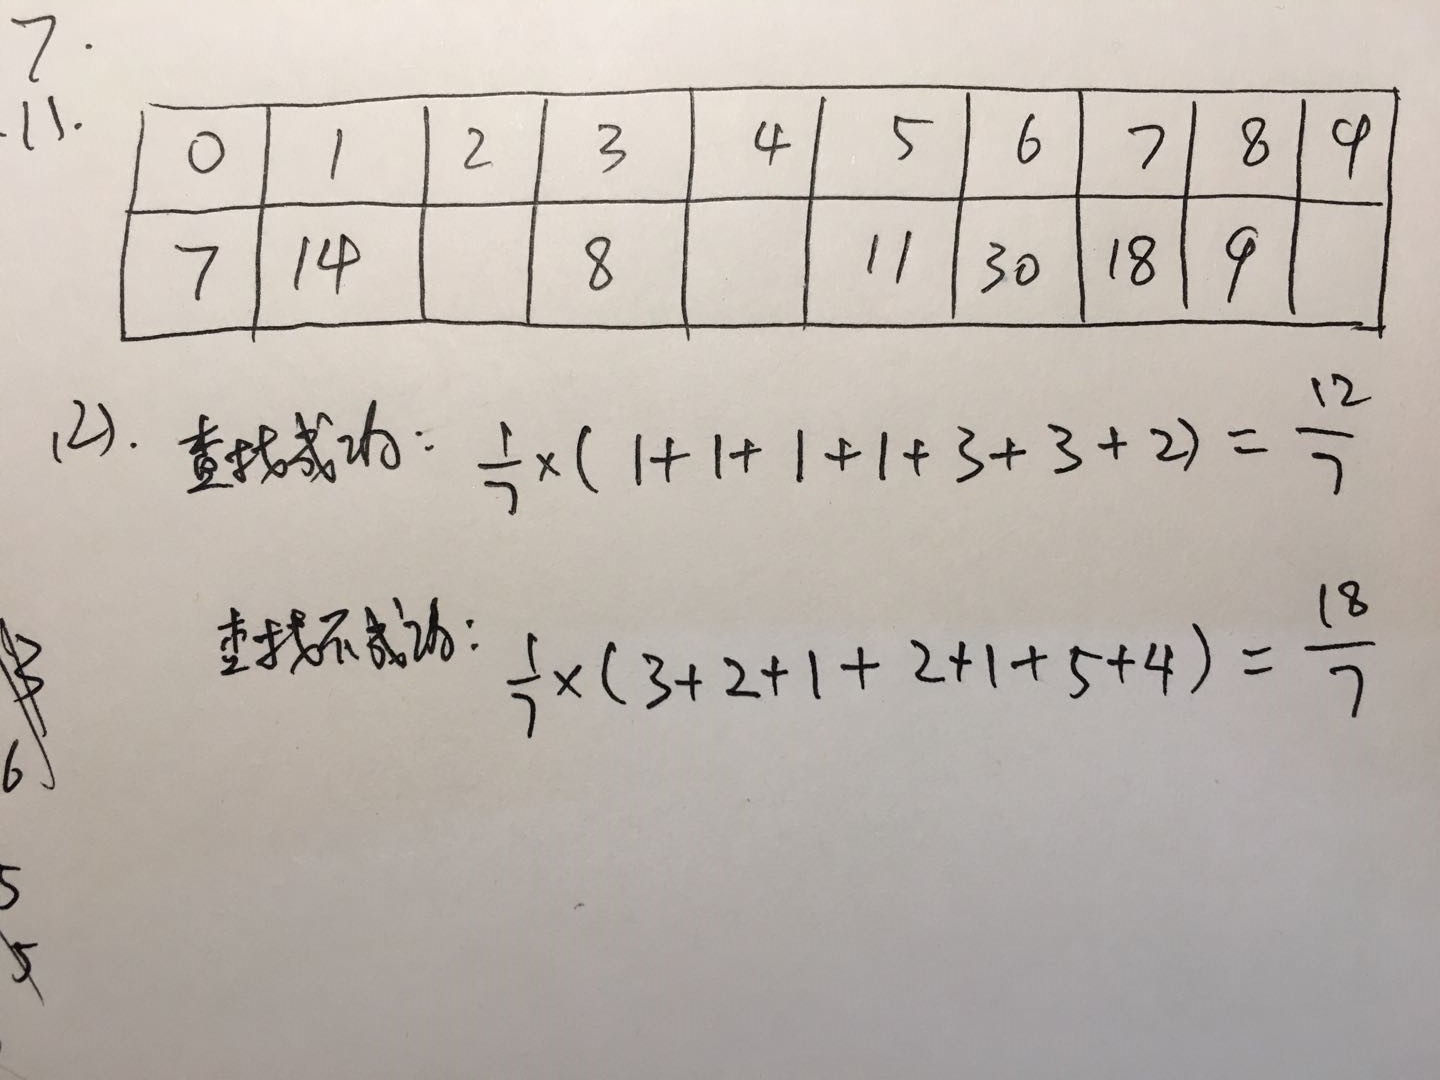 7.
(1).
0 1 2 3 4 5 6 7 8 9
7 14 8 11 30 18 9
(2). 查找成功: 1/7 × ( 1+1+1+1+3+3+2) = 12/7
查找不成功: 1/7 × ( 3+2+1+2+1+5+4 ) = 18/7
6
5
5